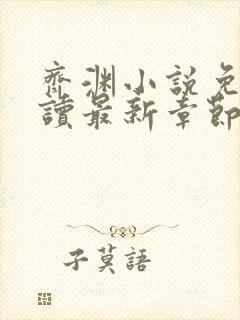 齊渊小說免
讀最新章節
子莫語